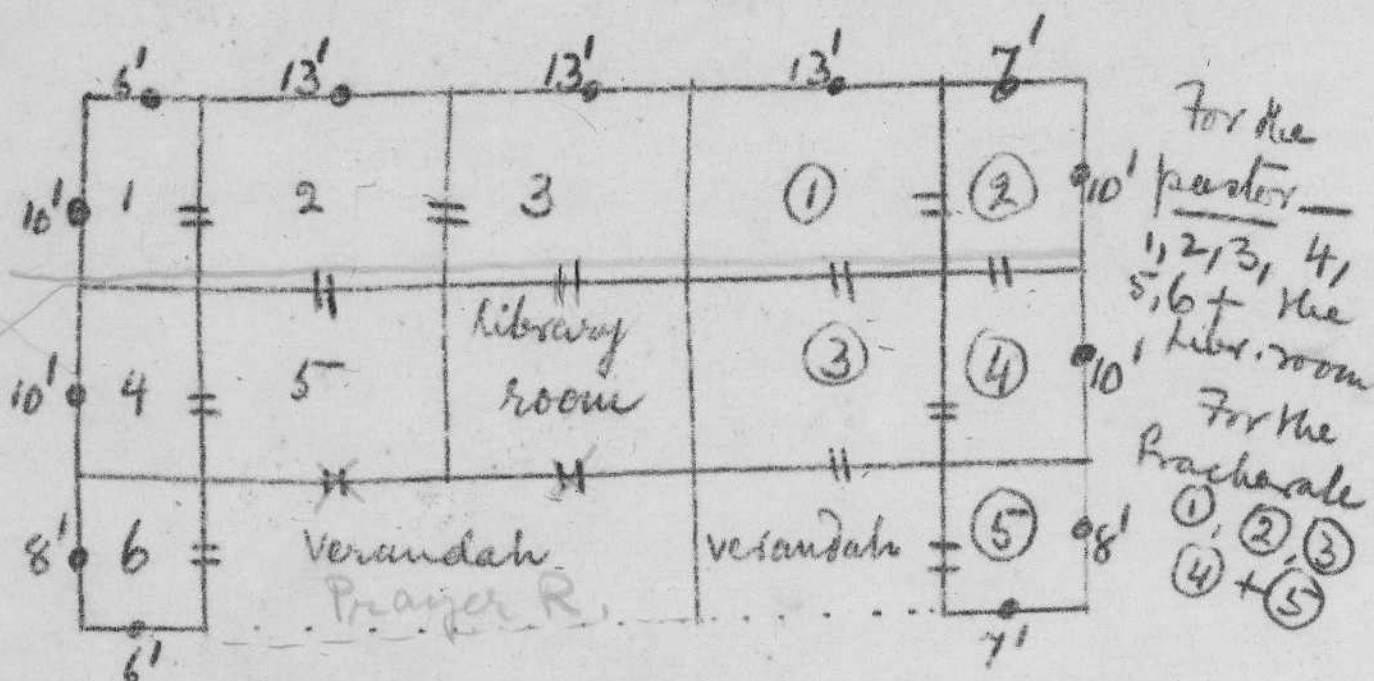 6' 13' 13' 13' 7'
10' 1 2 3 ① ② 10'
10' 4 5 Library room ③ ④ 10'
8' 6 Verandah verandah ⑤ 8'
Prayer R.
6' 7'
For the
pastor —
1, 2, 3, 4,
5, 6 + the
Libr. room
For the
Pracharak
①, ②, ③
④ + ⑤